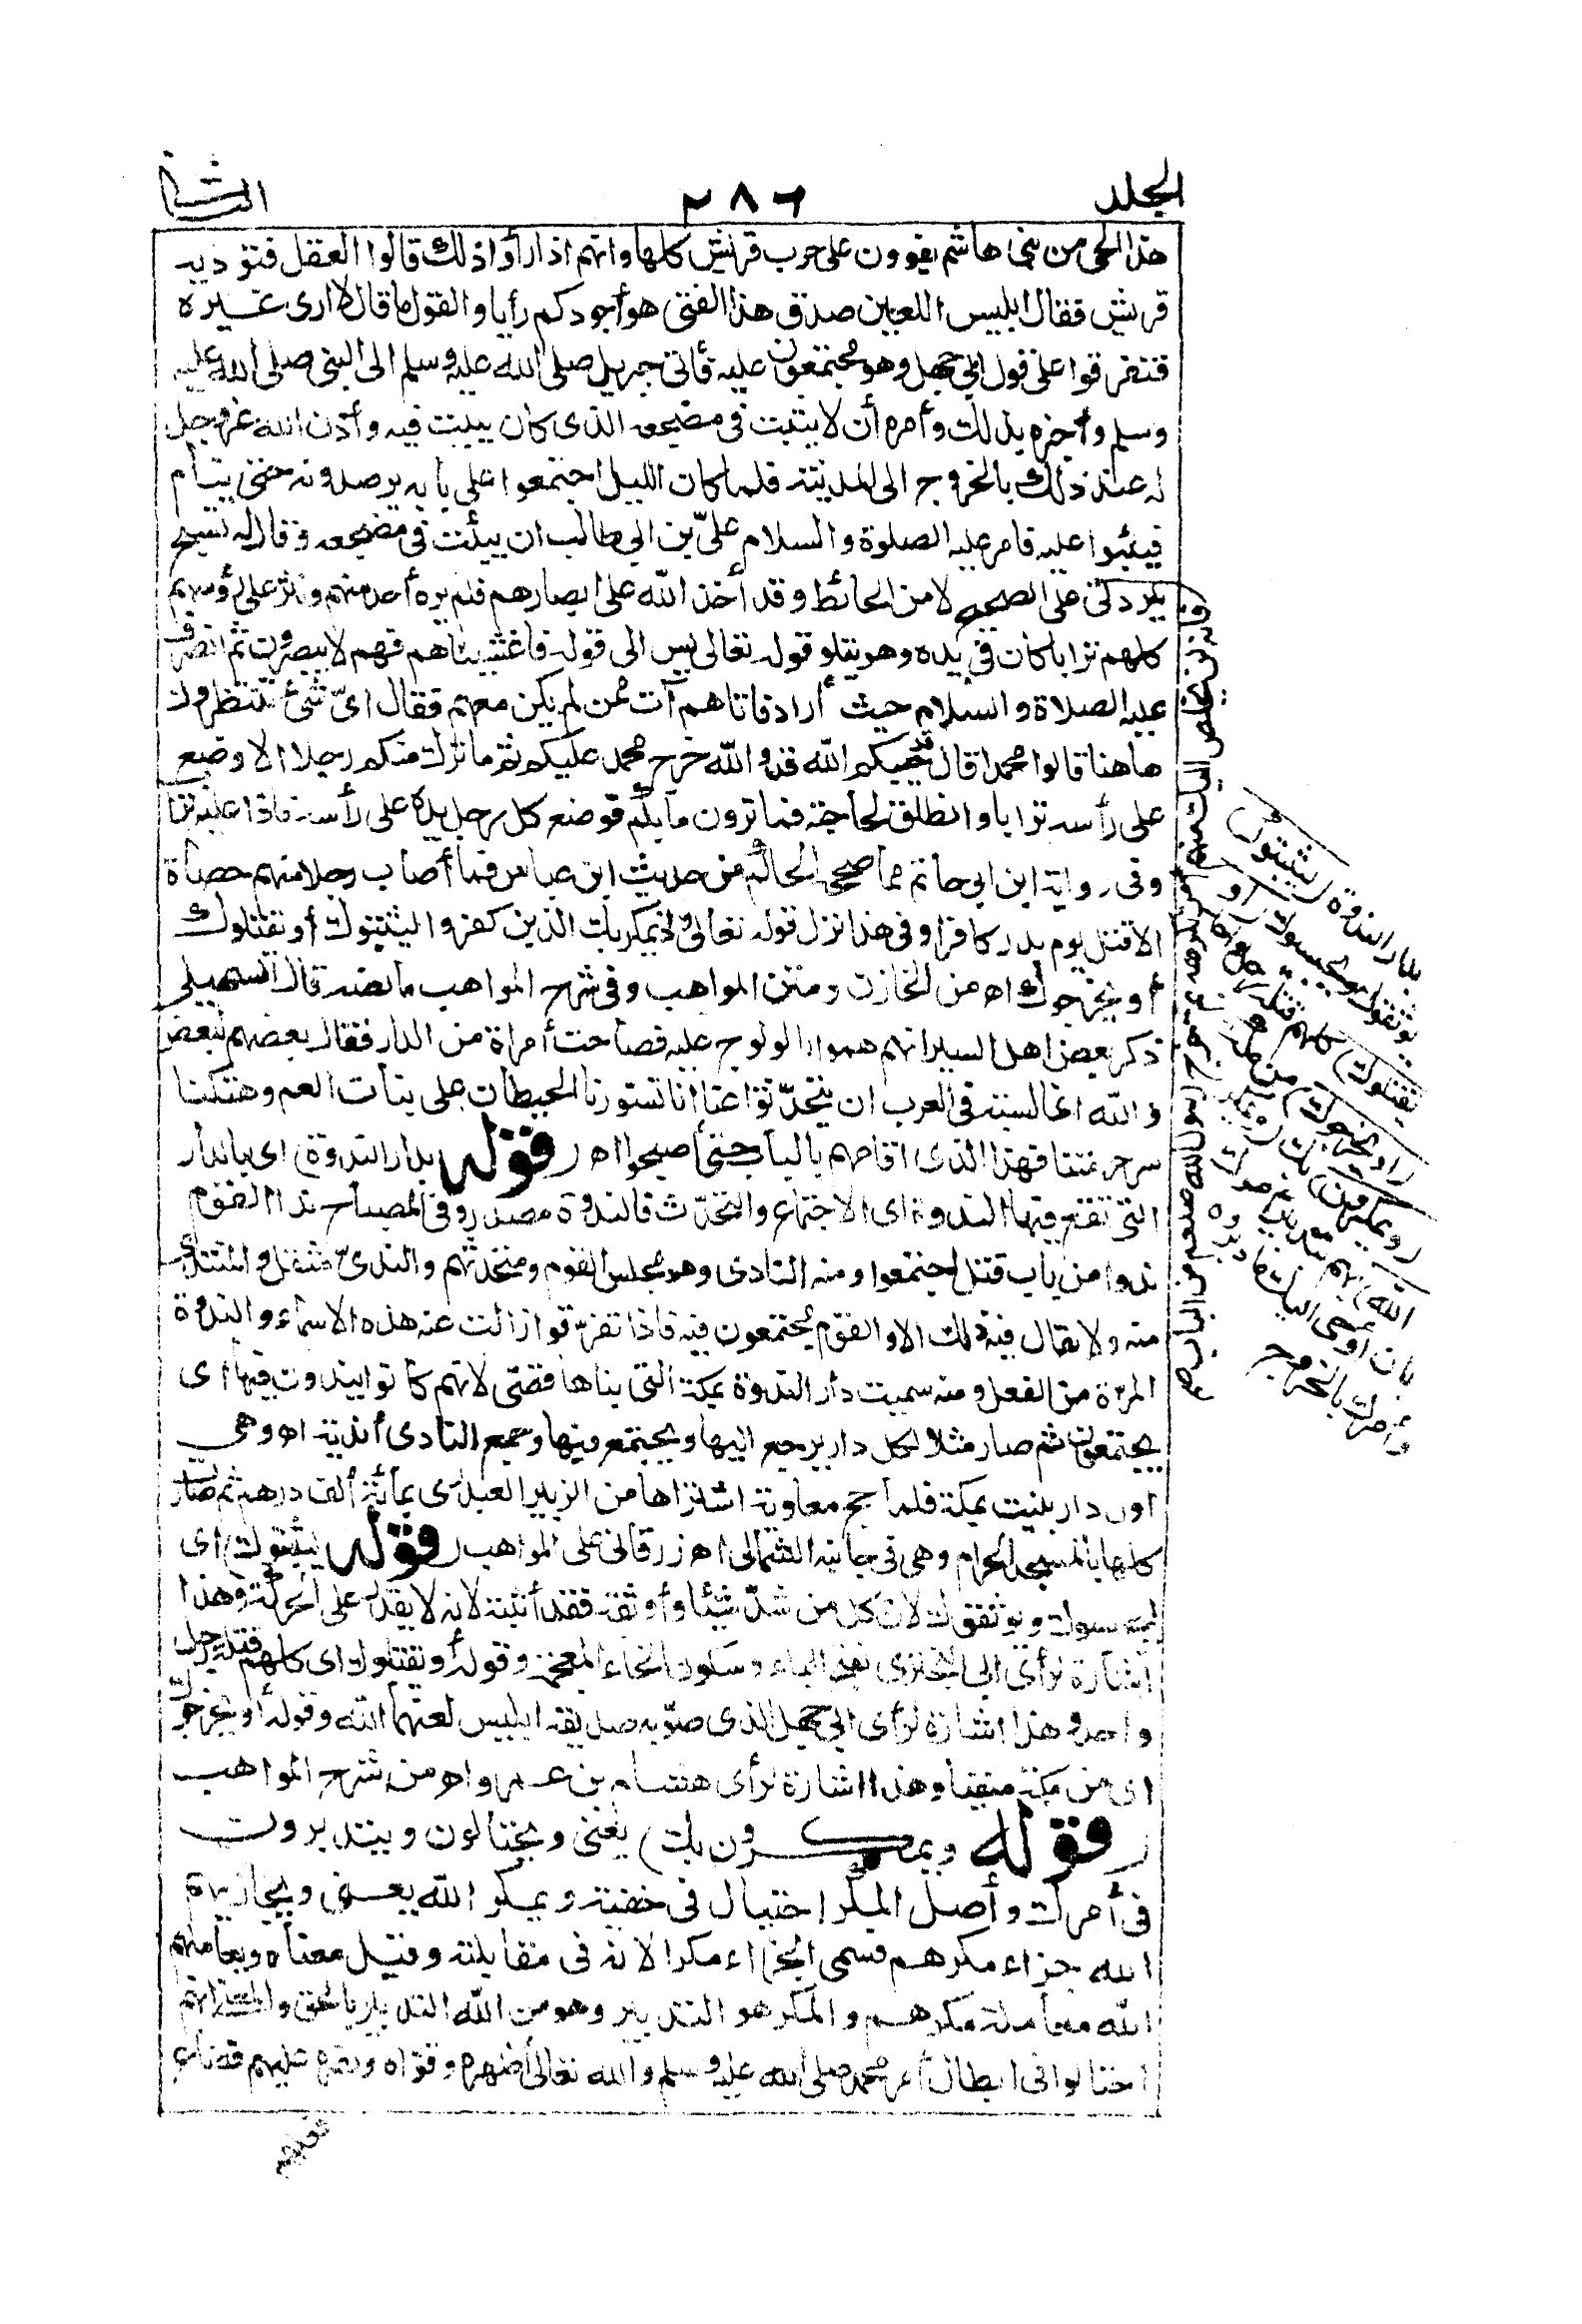 المجلد ٢٨٦ الثانى
هذا الحى من بنى هاشم يقوون على حرب قريش كلها وانهم اذا رأوا ذلك قالوا العقل فتؤديه
قريش فقال ابليس اللعين صدق هذا الفتى هو أجودكم رأيا والقول ما قال لا ارى غيره
فتفرقوا على قول ابى جهل وهو مجتمعون عليه فأتى جبريل صلى الله عليه وسلم الى النبى صلى الله عليه
وسلم وأخبره بذلك وأمره أن لا يثبت فى مضجعه الذى كان يبيت فيه وأذن الله عز وجل
له عند ذلك بالخروج الى المدينة فلما كان الليل اجتمعوا على بابه يرصدونه حتى ينام
فيثبوا عليه فامر عليه الصلوة والسلام علىّ بن ابى طالب ان يبيت فى مضجعه وقال له تسبح
ببردتى على الصحيح لا من الحائط وقد أخذ الله على ابصارهم فلم يره أحد منهم ونثر على رؤسهم
كلهم ترابا كان فى يده وهو يتلو قوله تعالى يس الى قوله فاغشيناهم فهم لا يبصرون ثم انصرف
عليه الصلاة والسلام حيث أراد فاتاهم آت ممن لم يكن معهم فقال اىّ شئ تنتظرون
هاهنا قالوا محمدا قال قد خيبكم الله قد والله خرج محمد عليكم ثم ما ترك منكم رجلا الا وضع
على رأسه ترابا وانطلق لحاجته فما ترون ما بكم فوضع كل رجل يده على رأسه فاذا عليه تراب
وفى رواية ابن ابى حاتم مما صححه الحاكم من حديث ابن عباس فما أصاب رجلا منهم حصاة
الا قتل يوم بدر كافرا وفى هذا نزل قوله تعالى واذ يمكر بك الذين كفروا ليثبتوك أو يقتلوك
أو يخرجوك اه من الخازن ومتن المواهب وفى شرح المواهب ما نصه قال السهيلى
ذكر بعض اهل السير انهم هموا بالولوج عليه فصاحت أمراة من الدار فقال بعضهم لبعض
والله انها لسبة فى العرب ان يتحدّثوا عنا انا تسورنا الحيطان على بنات العم وهتكنا
ستر حرمتنا فهذا الذى اقامهم بالباب حتى أصبحوا اه (قوله بدار الندوة) اى بالدار
التى تقع فيها الندوة اى الاجتماع والتحدّث فالندوة مصدر وفى المصباح ندا القوم
ندوا من باب قتل اجتمعوا ومنه النادى وهو مجلس القوم ومتحدثهم والندىّ مثقل والمنتدى
منه ولا يقال فيه ذلك الا والقوم مجتمعون فيه فاذا تفرّقوا زالت عنه هذه الاسماء والندوة
المرّة من الفعل ومنه سميت دار الندوة بمكة التى بناها قصى لانهم كانوا يندون فيها اى
يجتمعون ثم صار مثلا لكل دار يرجع اليها ويجتمع فيها وجمع النادى أندية اه وهى
اول دار بنيت بمكة فلما حج معاوية اشتراها من الزبير العبدرى بمائة ألف درهم ثم صارت
كلها بالمسجد الحرام وهى فى جانبه الشمالى اه زرقانى على المواهب (قوله ليثبتوك) اى
ليحبسوك ويوثقوك لان كل من شدّ شيئا وأوثقه فقد أثبته لانه لا يقدر على الحركة وهذا
اشارة لرأى ابى البخترى بفتح الباء وسكون الخاء المعجمة وقوله أو يقتلوك اى كلهم قتلة رجل
واحد وهذا اشارة لرأى ابى جهل الذى صوّبه صديقه ابليس لعنهما الله وقوله أو يخرجوك
اى من مكة منفيا وهذا اشارة لرأى هشام بن عمرو اه من شرح المواهب
(قوله ويمكرون بك) يعنى ويحتالون ويتدبرون
فى أمرك وأصل المكر احتيال فى خفية ويمكر الله يعنى ويجازيهم
الله جزاء مكرهم فسمى الجزاء مكرا لانه فى مقابلته وقيل معناه ويعاملهم
الله معاملة مكرهم والمكر هو التدبير وهو من الله التدبير بالحق والمعنى انهم
احتالوا فى ابطال أمر محمد صلى الله عليه وسلم والله تعالى أظهره وقوّاه ونصره عليهم فضاع
بدار الندوة (ليثبتوك)
يوثقوك ويحبسوك (أو
يقتلوك) كلهم قتلة رجل واحد
(أو يخرجوك) من مكة
(ويمكرون) بك (ويمكر
الله) بهم بتدبير أمرك
بان أوحى اليك ما دبروه
وأمرك بالخروج